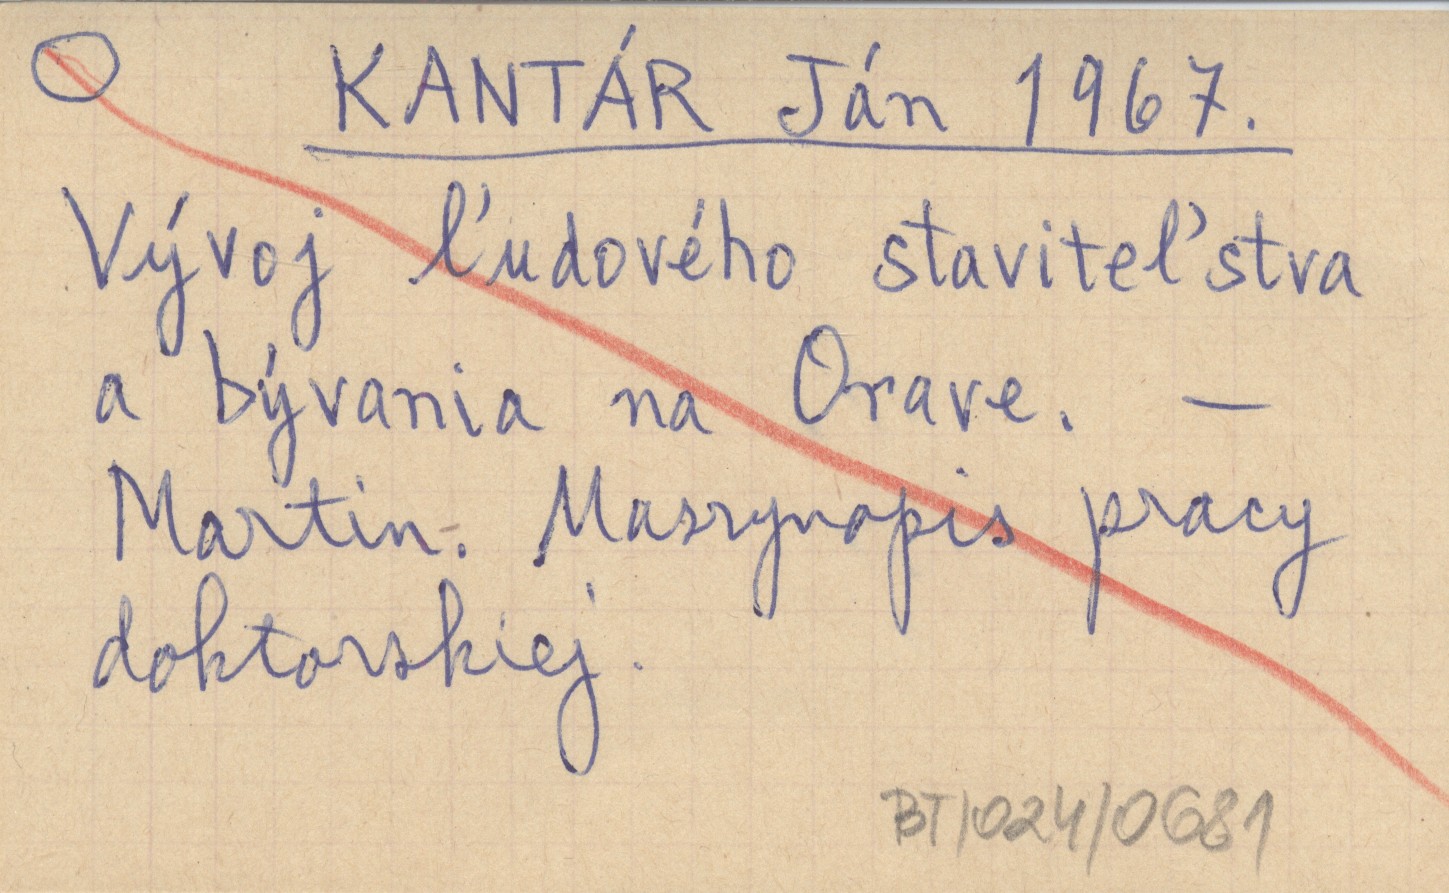 KANTÁR Ján 1967.
Vývoj ľudového staviteľstva
a bývania na Orave. —
Martin. Maszynopis pracy
doktorskiej.
BT/024/0681